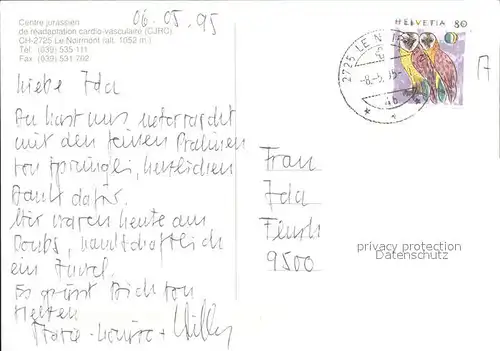 Centre jurassien
de réadaptation cardio-vasculaire (CJRC)
CH-2725 Le Noirmont (alt. 1052 m.)
Tel. (039) 535 111
Fax (039) 531 762
06.05.95
HELVETIA 80
2725 LE N
-8.-5. 95-
Liebe Ida
Du hast uns überrascht
mit den feinen Pralinen
von Sprüngli, herzlichen
Dank dafür.
Wir waren heute am
Doubs, landschaftlich
ein Juwel.
Es grüsst Dich von
Herzen
Marie-Louise + Willy
Frau
Ida
9500
privacy protection
Datenschutz